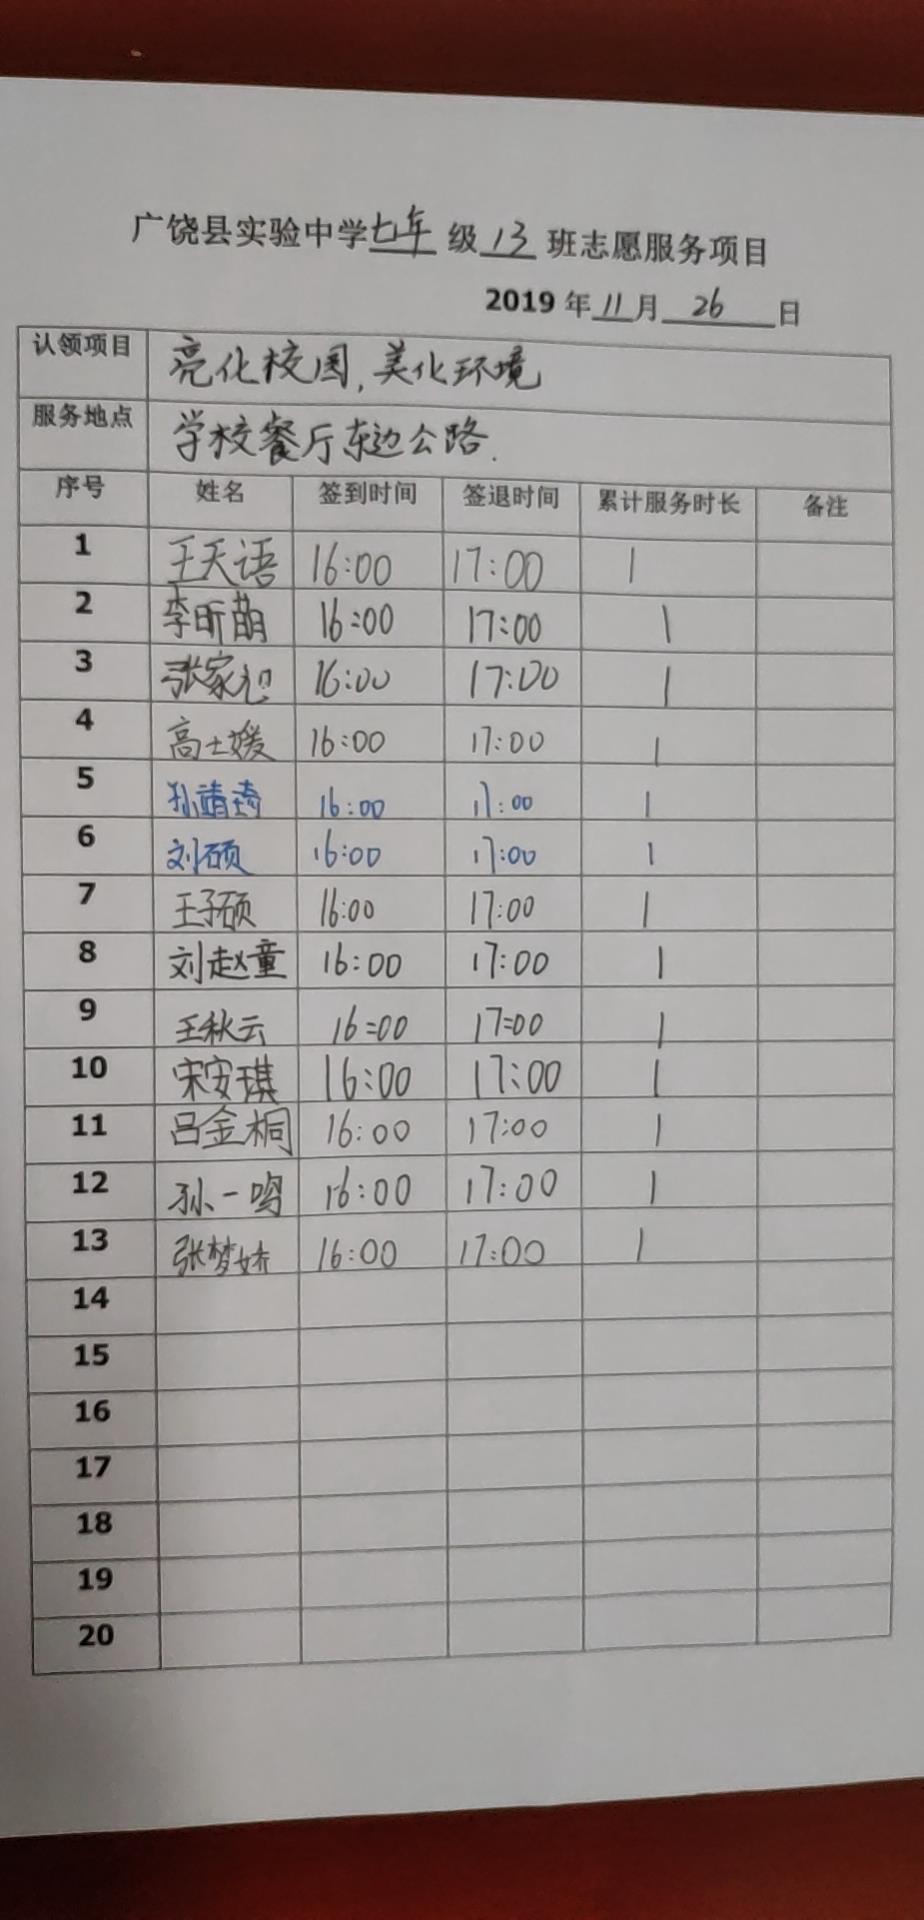 广饶县实验中学七年级13班志愿服务项目
2019年11月26日
认领项目 亮化校园,美化环境
服务地点 学校餐厅东边公路.
序号 姓名 签到时间 签退时间 累计服务时长 备注
1 王天语 16:00 17:00 1
2 李昕萌 16:00 17:00 1
3 张家旭 16:00 17:00 1
4 高士媛 16:00 17:00 1
5 孙靖琦 16:00 17:00 1
6 刘硕 16:00 17:00 1
7 王子硕 16:00 17:00 1
8 刘赵童 16:00 17:00 1
9 王秋云 16:00 17:00 1
10 宋安琪 16:00 17:00 1
11 吕金桐 16:00 17:00 1
12 孙一鸣 16:00 17:00 1
13 张梦娇 16:00 17:00 1
14
15
16
17
18
19
20